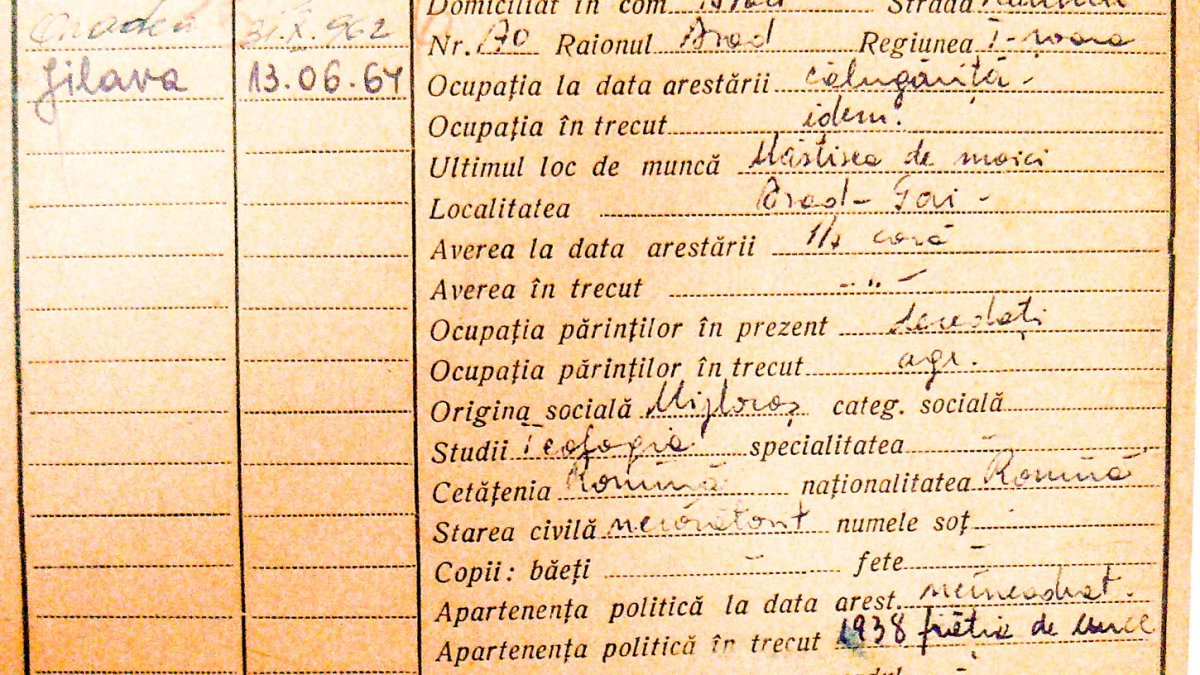 Oradea 31.X.962
Jilava 13.06.64
Domiciliat în com. Arad Strada
Nr. 170 Raionul Arad Regiunea T-șoara
Ocupația la data arestării călugăriță-
Ocupația în trecut idem.
Ultimul loc de muncă de maici
Localitatea Arad - Gai -
Averea la data arestării casă
Averea în trecut -„-
Ocupația părinților în prezent decedați
Ocupația părinților în trecut agr.
Origina socială Mijlocaș categ. socială
Studii Teologia specialitatea -
Cetățenia Romînă naționalitatea Romînă
Starea civilă numele soț -
Copii: băeți - fete -
Apartenența politică la data arest. neîncadrat.
Apartenența politică în trecut 1938 frăția de cruce